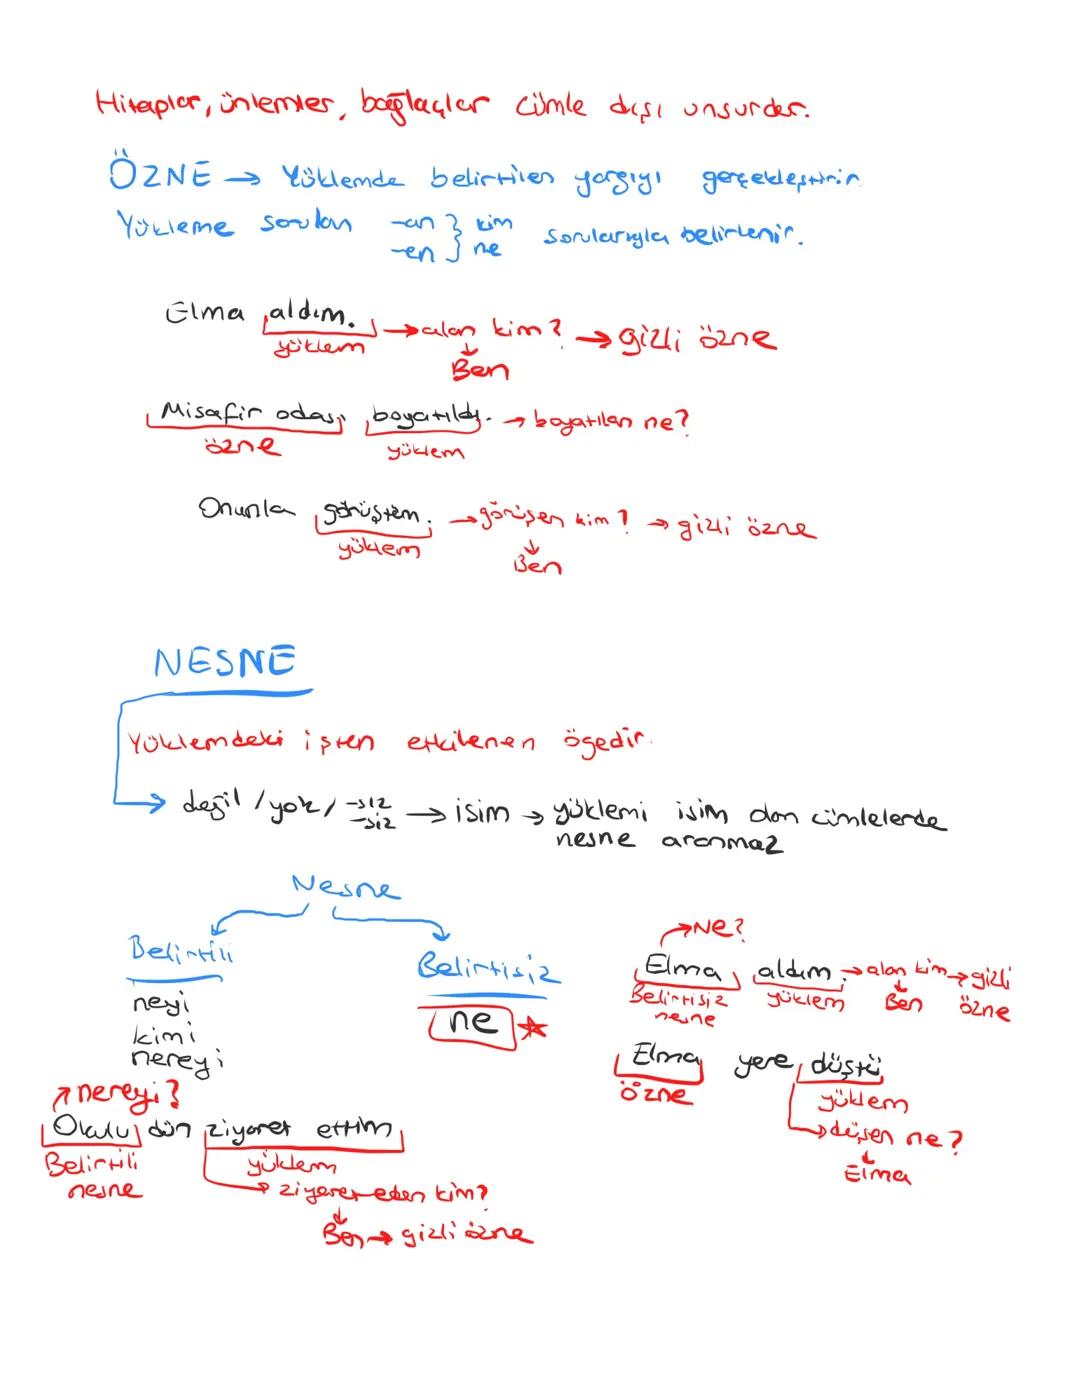 Hitaplar, ünlemler, bağlaçlar cümle dışı unsurdur.
ÖZNE → Yüklemde belirtilen yargıyı gerçekleştirir
Yükleme sorulan -an } kim
-en } ne sorularıyla belirlenir.
Elma aldım. → alan kim? → gizli özne
yüklem
Ben
Misafir odası boyatıldı. → boyatılan ne?
özne yüklem
Onunla görüştüm. → görüşen kim? → gizli özne
yüklem
Ben
NESNE
Yüklemdeki işten etkilenen ögedir.
→ değil / yok / -sız
-siz → isim → yüklemi isim olan cümlelerde
nesne aranmaz
Nesne
Belirtili
neyi
kimi
nereyi
Belirtisiz
ne
→ Ne?
Elma aldım. → alan kim → gizli
Belirtisiz yüklem Ben özne
nesne
Elma yere düştü
özne yüklem
→ düşen ne?
Elma
nereyi?
Okulu dün ziyaret ettim
Belirtili yüklem
nesne → ziyaret eden kim?
Ben → gizli özne